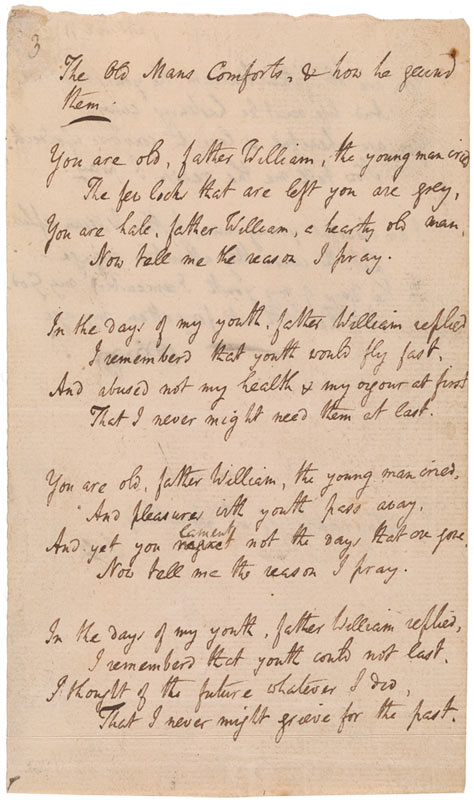 3
The Old Mans Comforts, & how he gained
them.
You are old, father William, the young man cried
The few locks that are left you are grey,
You are hale, father William, a hearty old man,
Now tell me the reason I pray.
In the days of my youth, father William replied
I rememberd that youth would fly fast,
And abused not my health & my vigour at first
That I never might need them at last.
You are old, father William, the young man cried,
And pleasures with youth pass away,
lament
And yet you regret not the days that are gone
Now tell me the reason I pray.
In the days of my youth, father William replied,
I rememberd that youth could not last.
I thought of the future whatever I did,
That I never might grieve for the past.